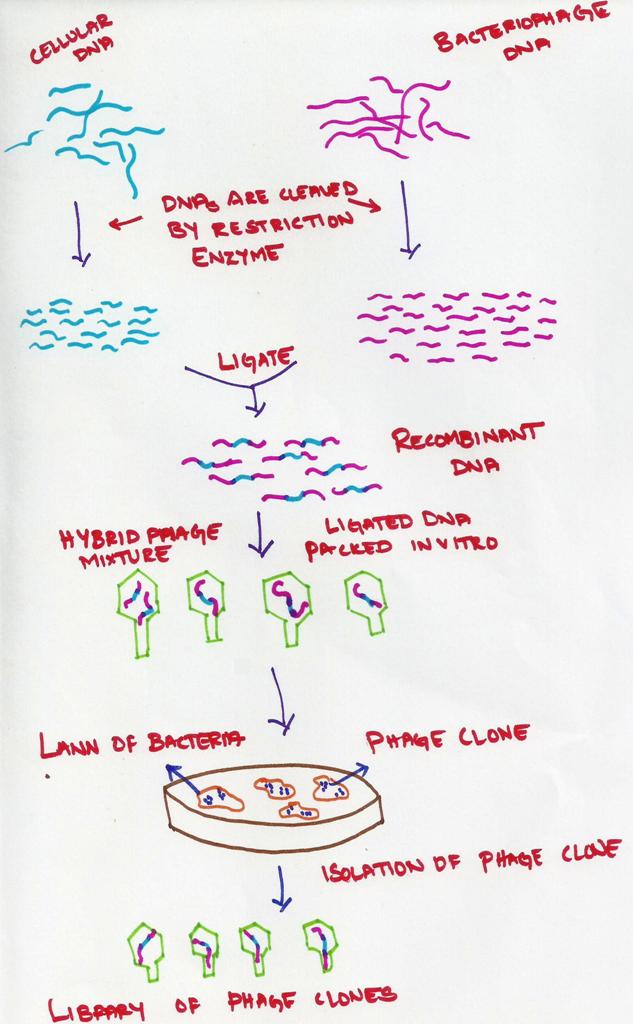 CELLULAR
DNA
BACTERIOPHAGE
DNA
DNAs ARE CLEAVED
BY RESTRICTION
ENZYME
LIGATE
RECOMBINANT
DNA
HYBRID PHAGE
MIXTURE
LIGATED DNA
PACKED IN VITRO
LANN OF BACTERIA
PHAGE CLONE
ISOLATION OF PHAGE CLONE
LIBRARY OF PHAGE CLONES